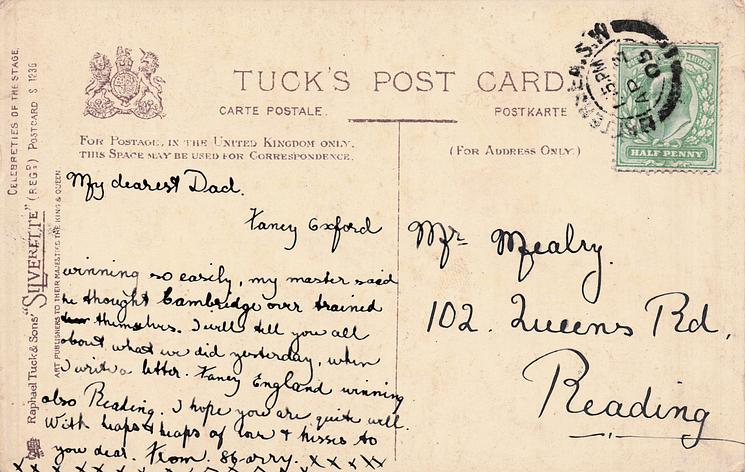 TUCK'S POST CARD.
CARTE POSTALE.
POSTKARTE
FOR POSTAGE, IN THE UNITED KINGDOM ONLY,
THIS SPACE MAY BE USED FOR CORRESPONDENCE.
(FOR ADDRESS ONLY.)
CELEBRITIES OF THE STAGE.
Raphael Tuck & Sons' "SILVERETTE" (REGD) POSTCARD S 1236
ART PUBLISHERS TO THEIR MAJESTIES THE KING & QUEEN
My dearest Dad.
Faney Oxford
winning so easily, my master said
he thought Cambridge over trained
themselves. I will tell you all
about what we did yesterday, when
I write a letter. Faney England winning
also Reading. I hope you are quite well.
With heaps & heaps of love & kisses to
you dear. From. arry. x x x x x
Mr. Mealry.
102. Queens Rd,
Reading
S.W
5.PM
AP
05
HALF PENNY